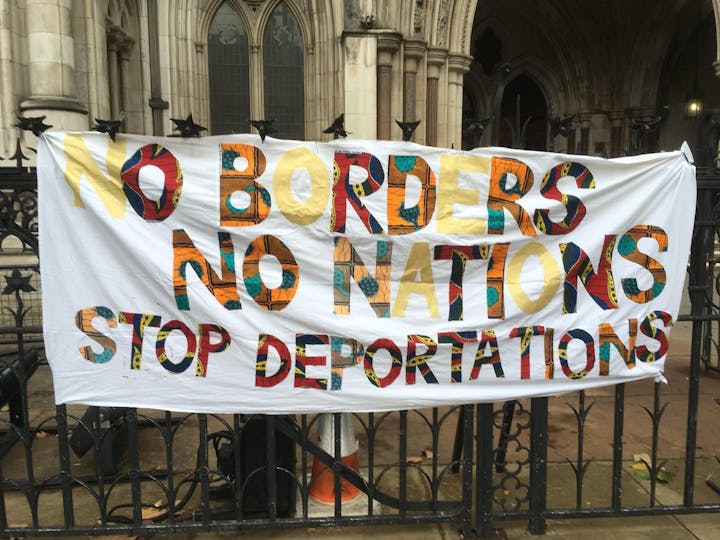 NO BORDERS
NO NATIONS
STOP DEPORTATIONS